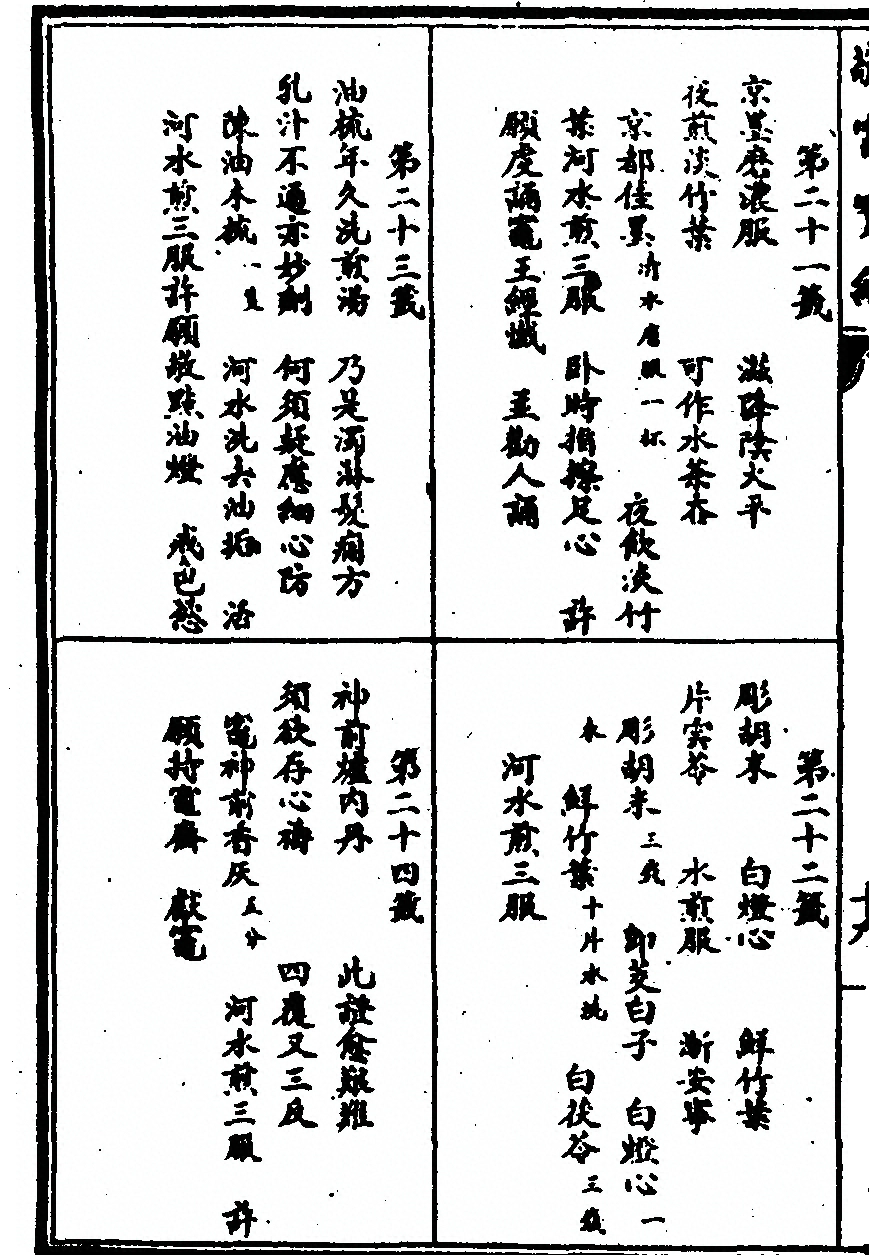 第二十一籤
京墨磨濃服　滋降陰火平
夜煎淡竹葉　可作水茶吞
京都佳墨 清水磨服一杯　夜飲淡竹
葉河水煎三服　臥時指擦足心　許
願虔誦竈王經懺　並勸人誦
第二十二籤
彫胡米　白燈心　鮮竹葉
片雲苓　水煎服　漸安寧
彫胡米 三錢　即茭白子　白燈心 一
水　鮮竹葉 十片水洗　白茯苓 三錢
河水煎三服
第二十三籤
油梳年久洗煎湯　乃是濁淋髮痼方
乳汁不通亦妙劑　何須疑慮細心防
陳油木梳 一隻　河水洗去油垢　活
河水煎三服許願敬點油燈　戒色慾
第二十四籤
神前爐內丹　此證愈艱難
須欲存心禱　四覆又三反
竈神前香灰 五分　河水煎三服　許
願持竈齋　獻竈